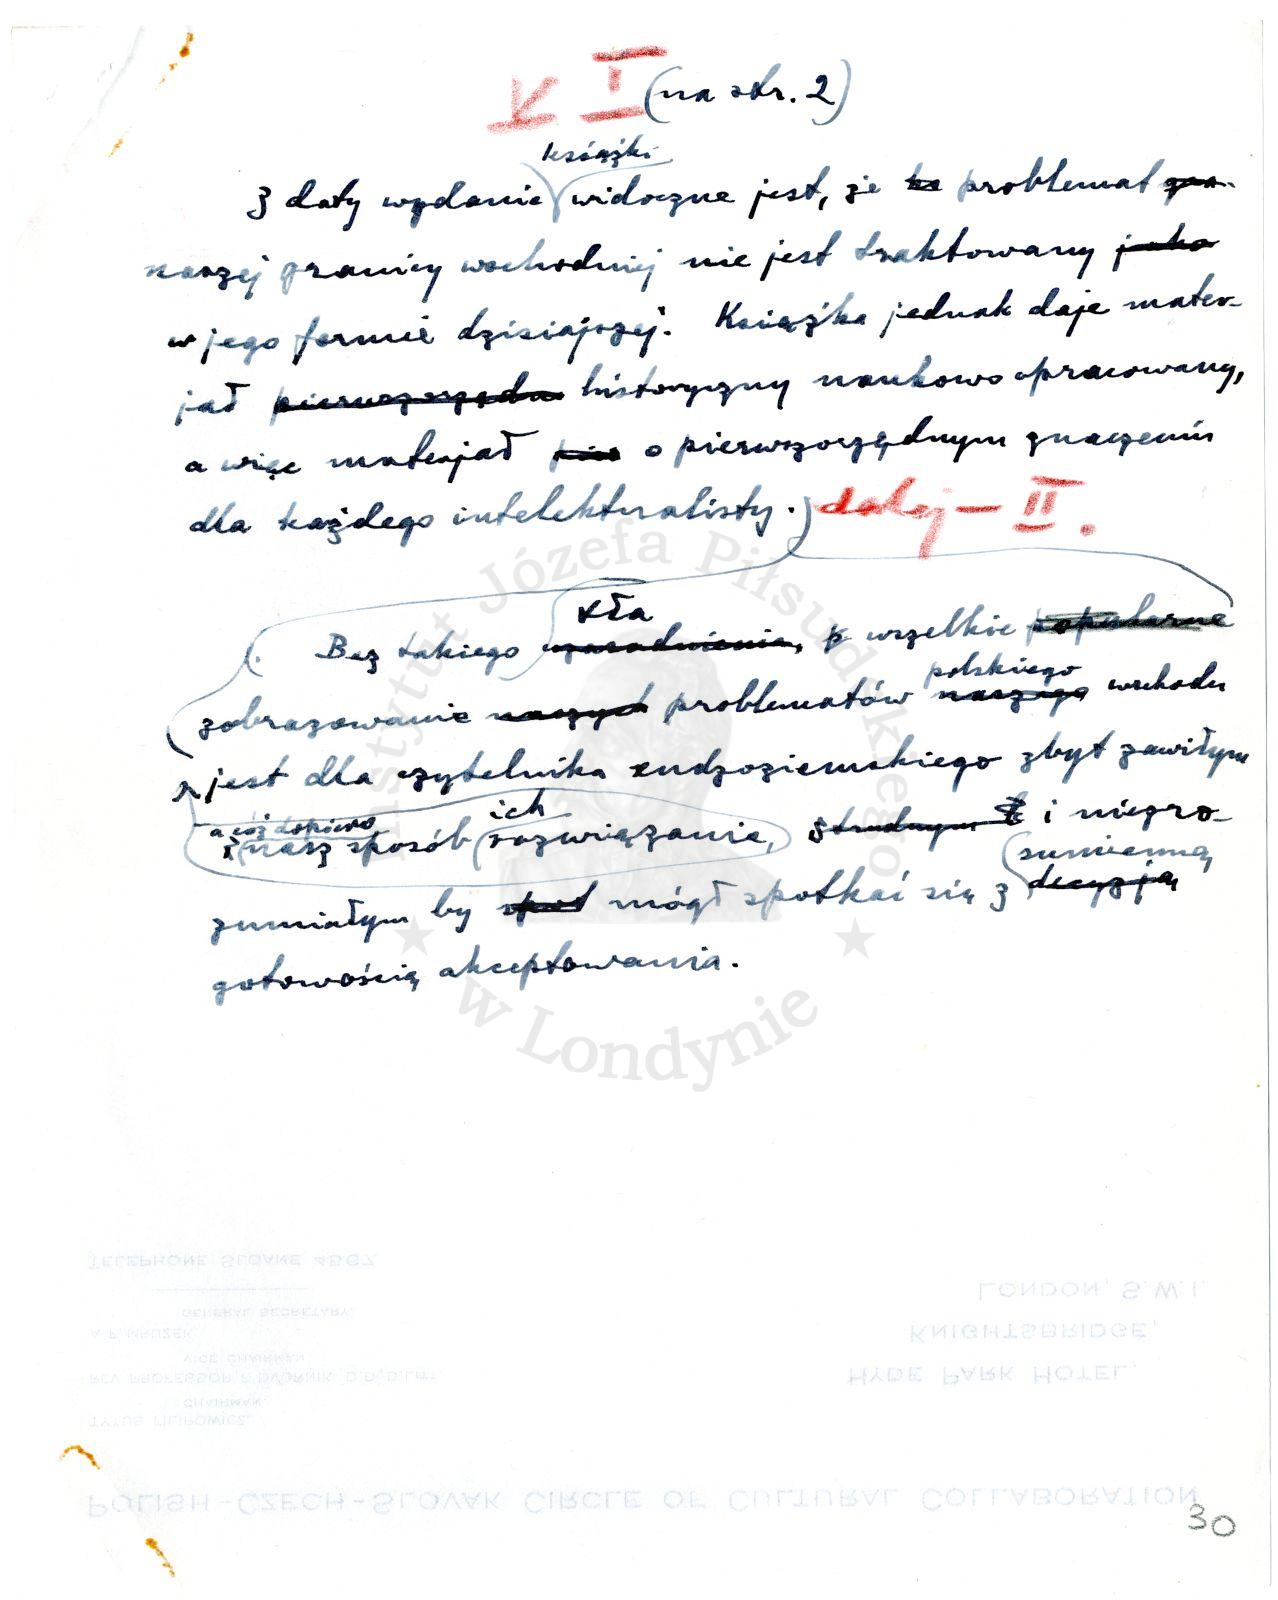 V I (na str. 2)
książki
Z daty wydania widoczne jest, że to problemat gra-
naszej granicy wschodniej nie jest traktowany jako
w jego formie dzisiajszej. Książka jednak daje mater-
jał pierwszorzędn historyczny naukowo opracowany,
a więc materjał pie o pierwszorzędnym znaczeniu
dla każdego intelektualisty. dalej — II.
tła
Bez takiego wszelkie popularne
polskiego
zobrazowanie naszych problematów naszego wschodu
jest dla czytelnika cudzoziemskiego zbyt zawiłym
a cóż dopiero ich
nasz sposób rozwiązania, trudnym i niezro-
sumienną
zumiałym by mógł spotkać się z decyzją
gotowością akceptowania.
Instytut Józefa Piłsudskiego
w Londynie
TELEPHONE SLOANE 4567
GENERAL SECRETARY.
A.F. MRUZEK
VICE CHAIRMAN
REV. PROFESSOR F. DVORNIK, D.D., D.LITT.
CHAIRMAN
TYTUS FILIPOWICZ.
LONDON, S.W.1.
KNIGHTSBRIDGE,
HYDE PARK HOTEL,
POLISH-CZECH-SLOVAK CIRCLE OF CULTURAL COLLABORATION
30